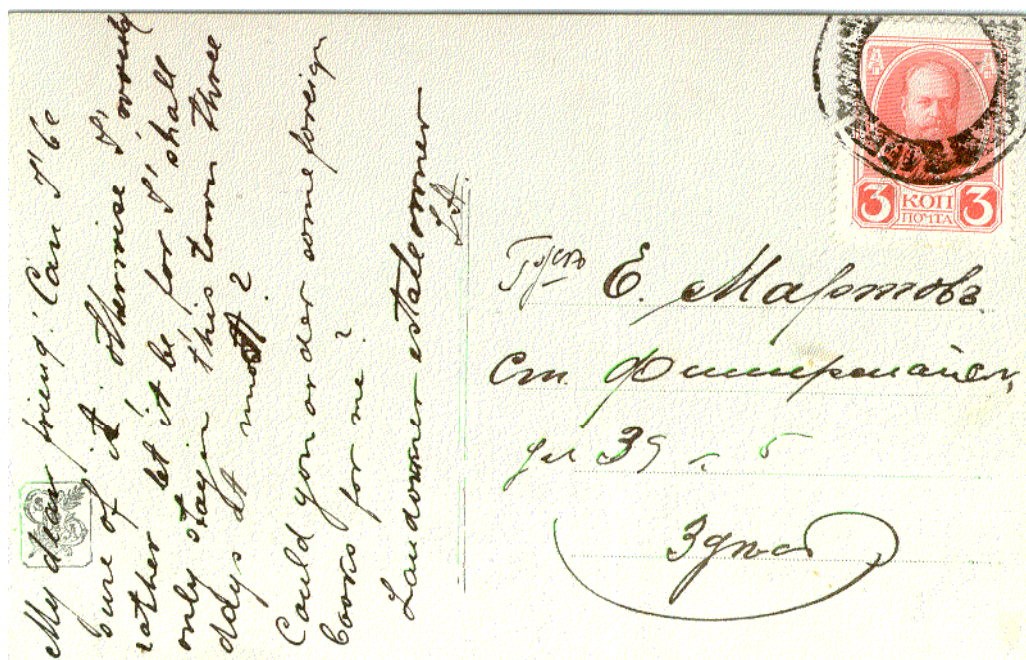 My dear friend! Can I be
sure of it. otherwise I'
rather let it be for I' shall
only stay in this town three
days at most?
Could you order some foreign
books for me?
Landowner estateowner
3
КОП
ПОЧТА
3
Е. Мартовъ
Ст.
39
5
Здѣсь